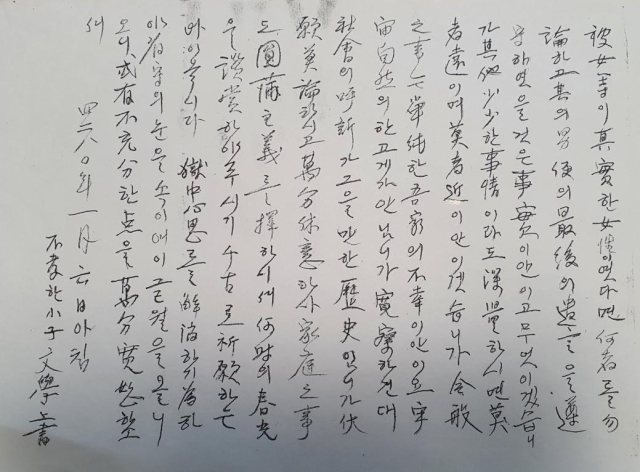 彼女가 真實한 女性이였다면 何者를 勿
論하고 其의 男便의 最後의 遺言을 遵
守하였을것은 事實이안이고 무엇이겠습니
가 其他 少少한 事情이라도 深量하시면 莫
者遠이며 莫者近이안이겟습니가 今般
之事는 單純한 吾家의 不幸이안이요 宇
宙自然의 한고개가안닙니가 寬察하건대
社會의 呼訴가 그을만한 歷史임니가 伏
願莫論하시고 萬分休意하사 家庭之事
도 圓蒲主義를 擇하시서 何時의 春光
을 讚賞하야주시기 千古로 祈願하는
바이올시다 獄中心思를 解消하기 為하
야 看守의 눈을 속이며이 글월을 올니
오니 或有不充分한 点을 萬分寬恕하소
서
四二八〇年 一月 六日 아침
不孝한 小子 文學 上書